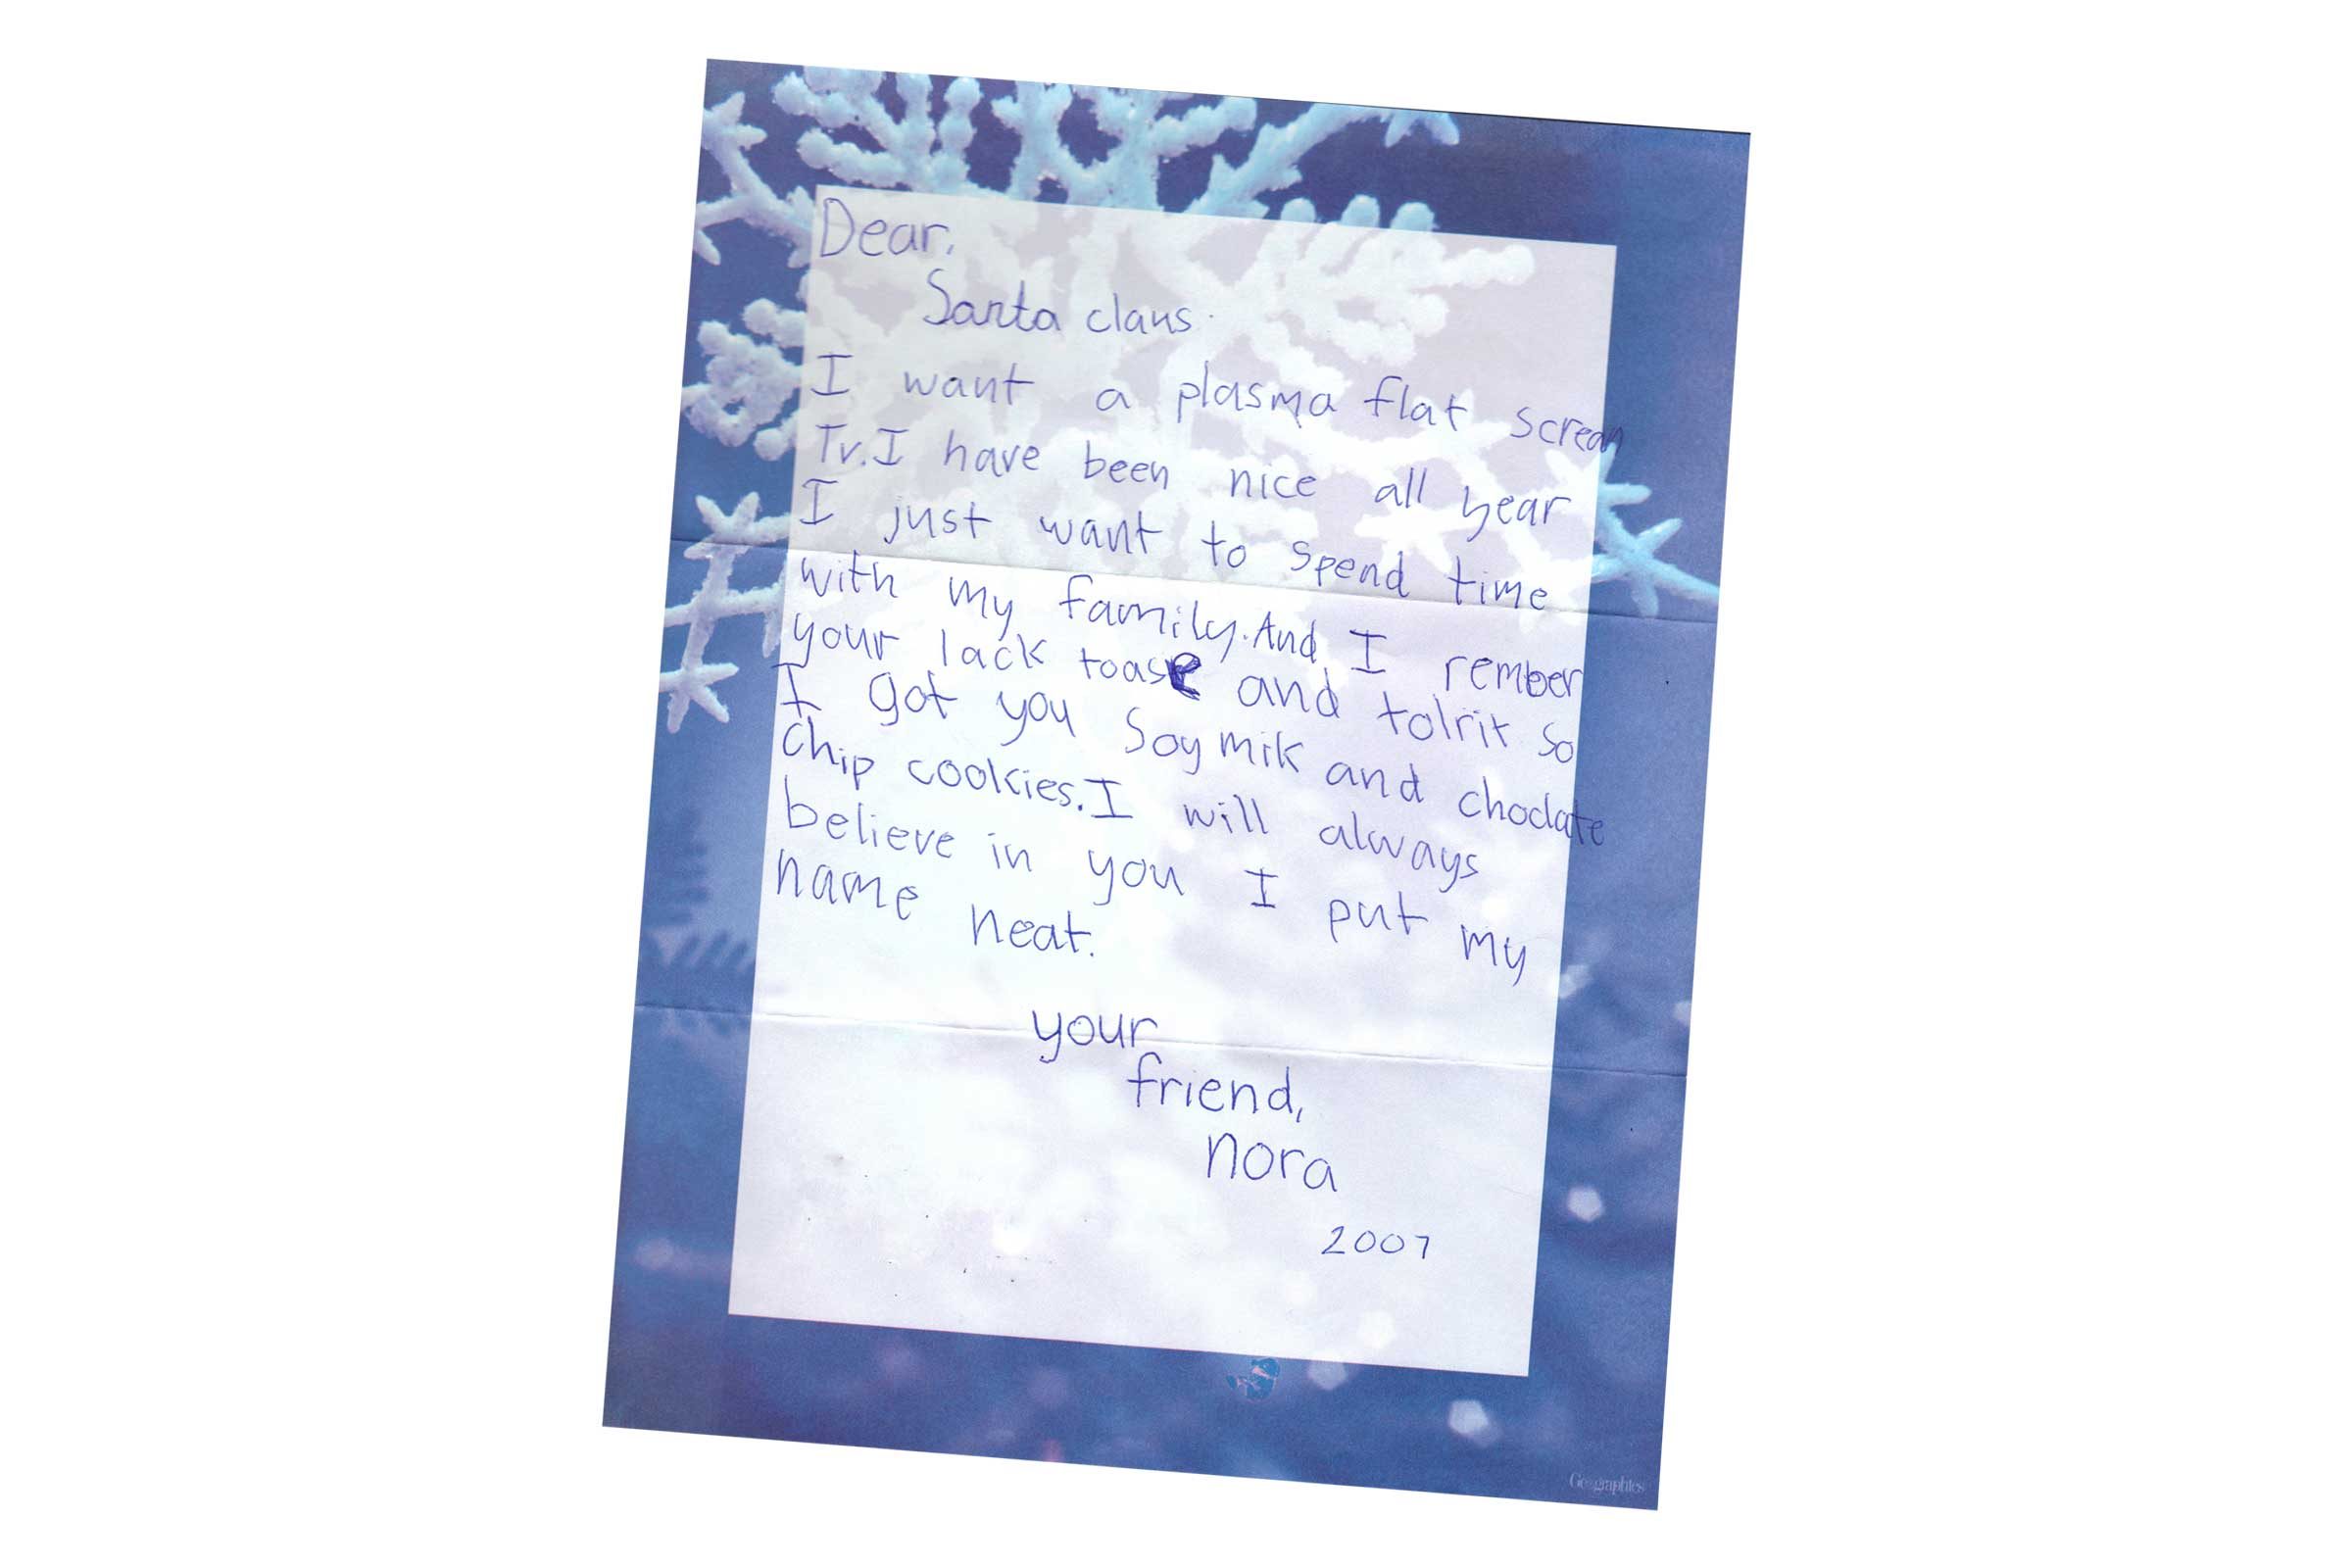 Dear,
Santa claus.
I want a plasma flat screan
Tv. I have been nice all year
I just want to spend time
with my family. And I rember
your lack toase and tolrit so
I got you Soy mik and choclate
chip cookies. I will always
believe in you I put my
name neat.
your
friend,
nora
2007
Geographics